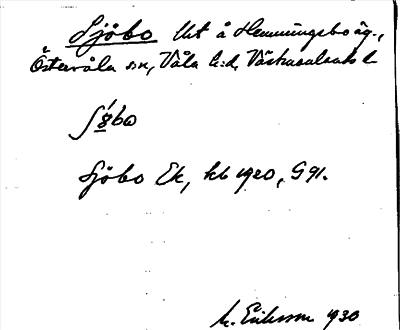 Sjöbo Ut å Hemmingsbo äg.,
Östervåla sn, Våla hd, Västmanlands l
Sjöbo Ek, kb 1920, G 91.
M. Eriksson 1930